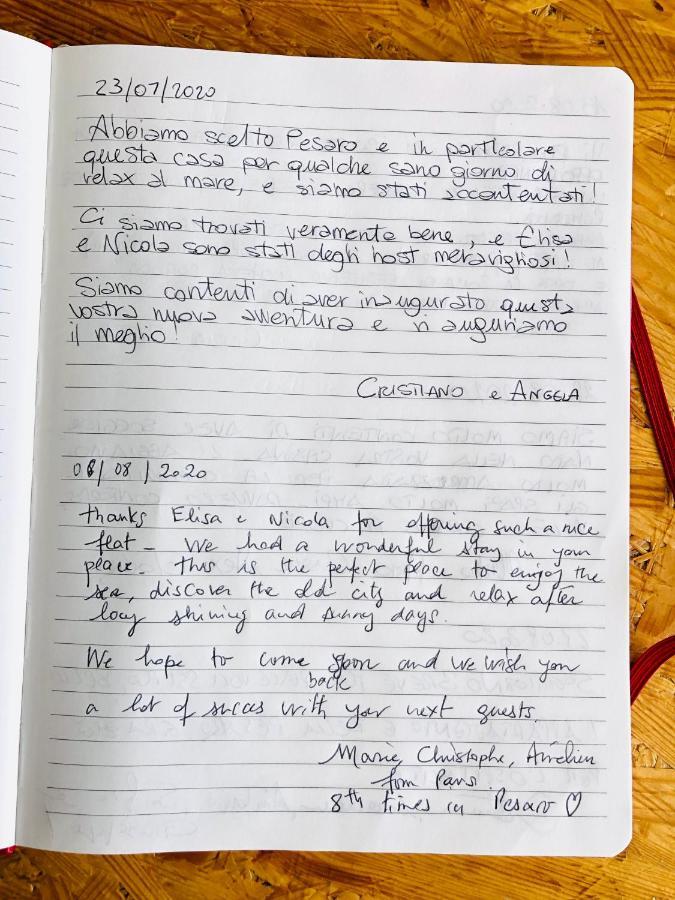 23/07/2020
Abbiamo scelto Pesaro e in particolare
questa casa per qualche sano giorno di
relax al mare, e siamo stati accontentati!
Ci siamo trovati veramente bene, e Elisa
e Nicola sono stati degli host meravigliosi!
Siamo contenti di aver inaugurato questa
vostra nuova avventura e vi auguriamo
il meglio!
CRISTIANO e ANGELA
08/08/2020
thanks Elisa e Nicola for offering such a nice
flat - We had a wonderful stay in your
place. this is the perfect place to enjoy the
sea, discover the old city and relax after
long shining and sunny days.
We hope to come soon and we wish you
back
a lot of succes with your next guests.
Marie, Christophe, Aurélien
from Paris.
8th times in Pesaro ♡